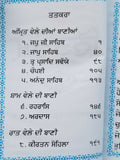 ਤਤਕਰਾ
ਅੰਮ੍ਰਿਤ ਵੇਲੇ ਦੀਆਂ ਬਾਣੀਆਂ
੧. ਜਪੁ ਜੀ ਸਾਹਿਬ ੧
੨. ਜਾਪੁ ਸਾਹਿਬ ੪੦
੩. ਤ੍ਵ ਪ੍ਰਸਾਦਿ ਸਵੱਯੇ
੪. ਚੌਪਈ
੫. ਅਨੰਦੁ ਸਾਹਿਬ
ਸ਼ਾਮ ਵੇਲੇ ਦੀ ਬਾਣੀ
੬. ਰਹਰਾਸਿ
੭. ਅਰਦਾਸ
ਰਾਤ ਵੇਲੇ ਦੀ ਬਾਣੀ
੮. ਕੀਰਤਨ ਸੋਹਿਲਾ